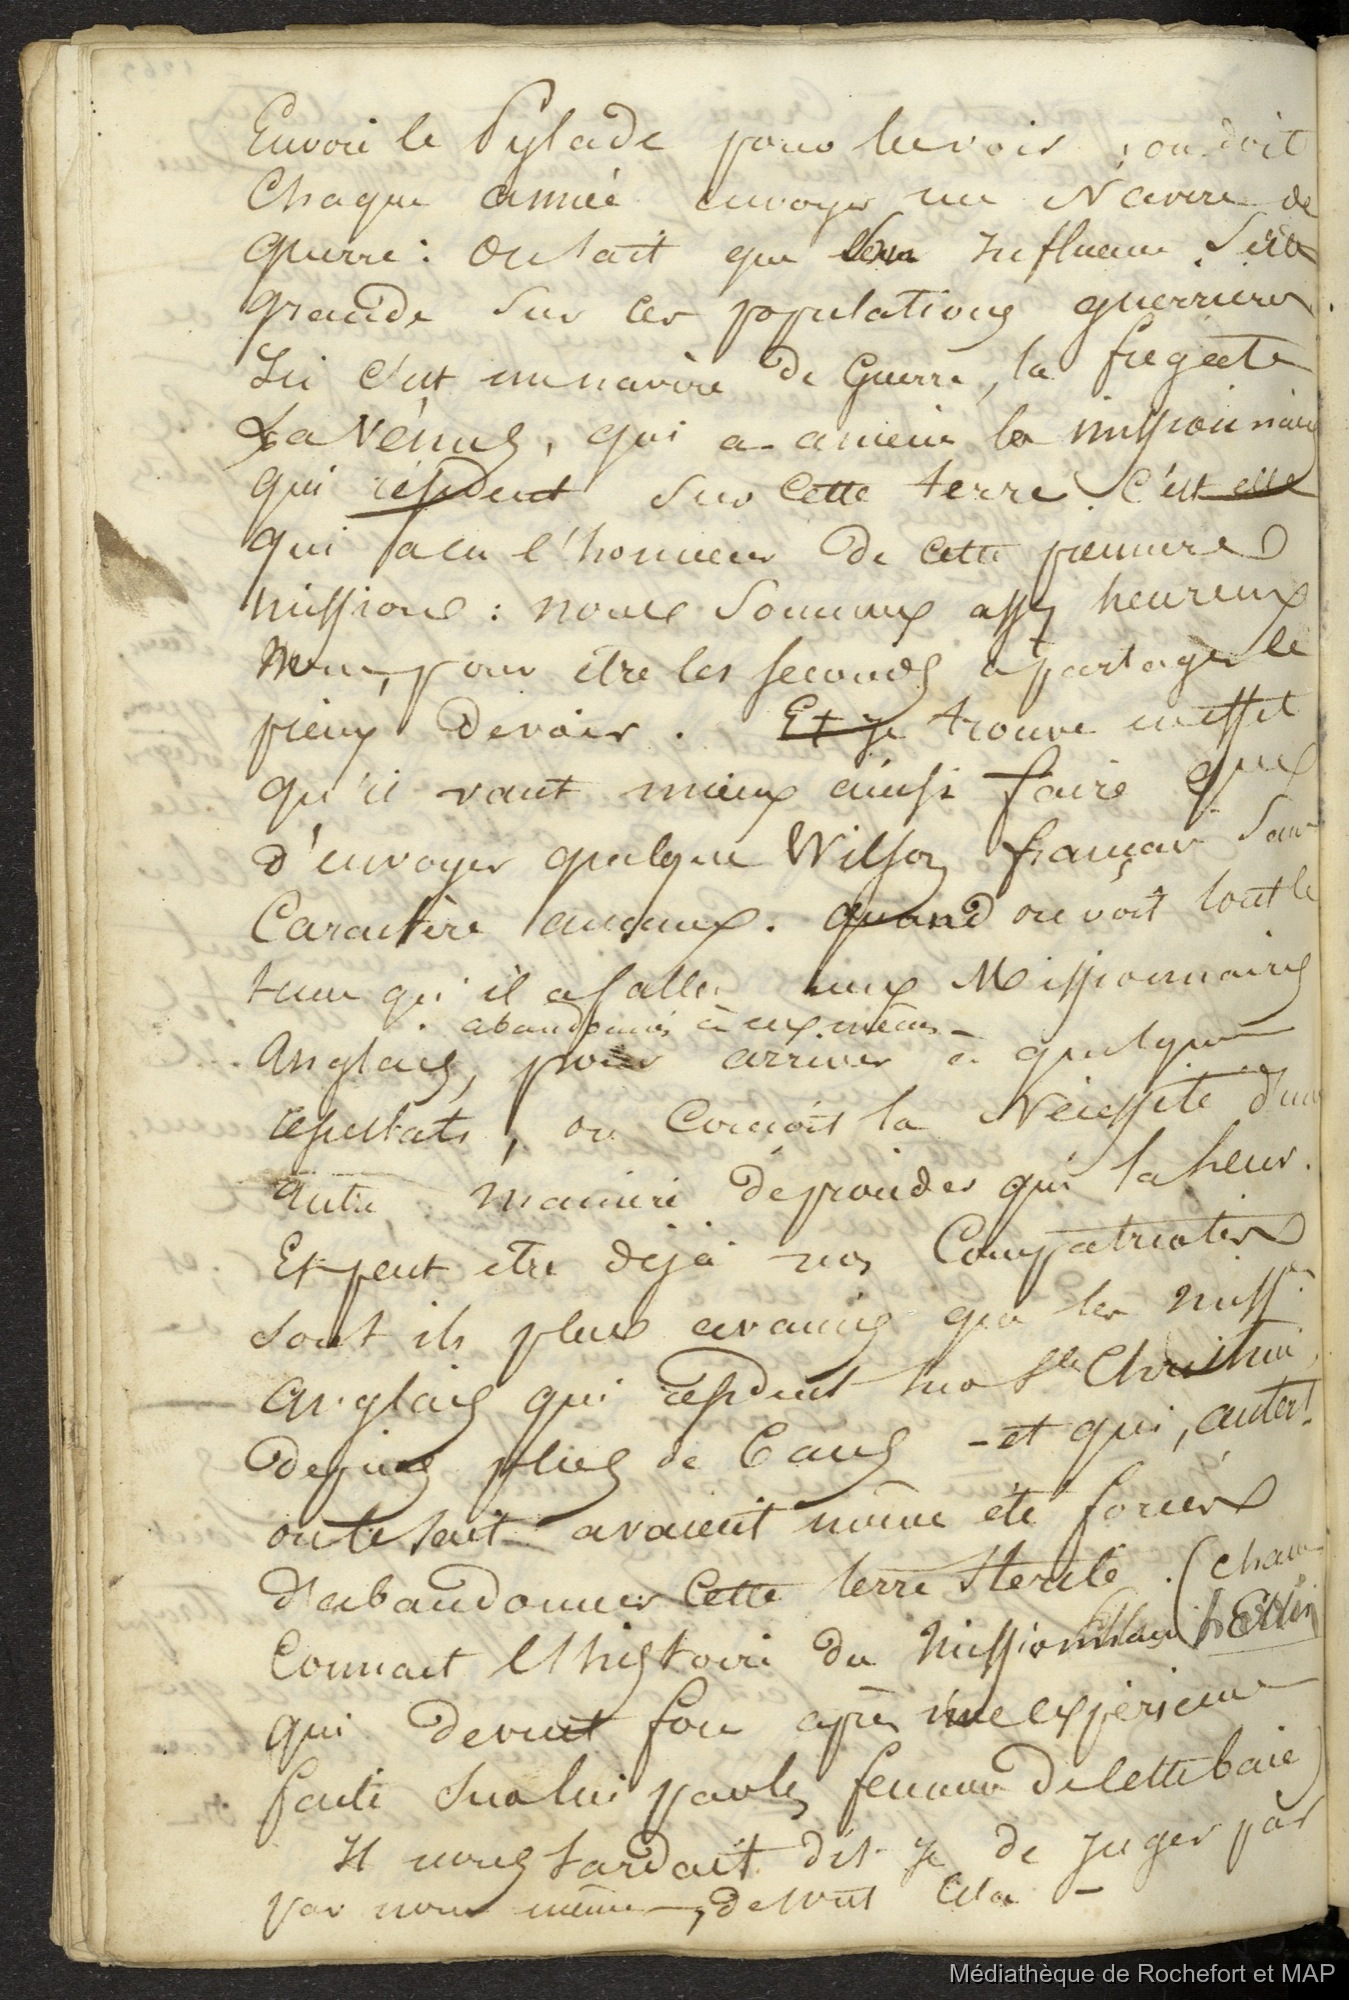 Envoié le Pylade pour les voir ; on doit
Chaque année envoyer un Navire de
guerre : on sait que leur Influence est
grande sur ces populations guerrières
Ici c'est un navire de Guerre, la fregate
La Vénus, qui a amené les missionnaires
qui résident sur cette terre. C'est elle
qui a eu l'honneur de cette premiere
mission : nous sommes assez heureux
nous, pour être les seconds à partager le
pieux devoir. Et je trouve en effet
qu'il vaut mieux ainsi faire que
d'envoyer quelque Wilson français sans
Caractère aucun. quand on voit tout le
tems qu'il a fallu aux Missionnaires
abandonnés à eux mêmes -
Anglais, pour arriver à quelques
résultats, on conçoit la Nécessité d'une
autre manière de procéder que la leur.
Et peut être déjà nos Compatriotes
sont ils plus avancés que les miss.
anglais qui résident sur Ste Christine,
depuis plus de 6 ans - et qui, autant
on le sait avaient même été forcés
d'abandonner Cette terre sterile. (chacun
Connait l'histoire du missionnaire
qui devint fou après une expérience
faite sur lui par les femmes de cette baie)
Il nous tardait dis-je de juger par
par nous même, de tout cela -
Médiathèque de Rochefort et MAP